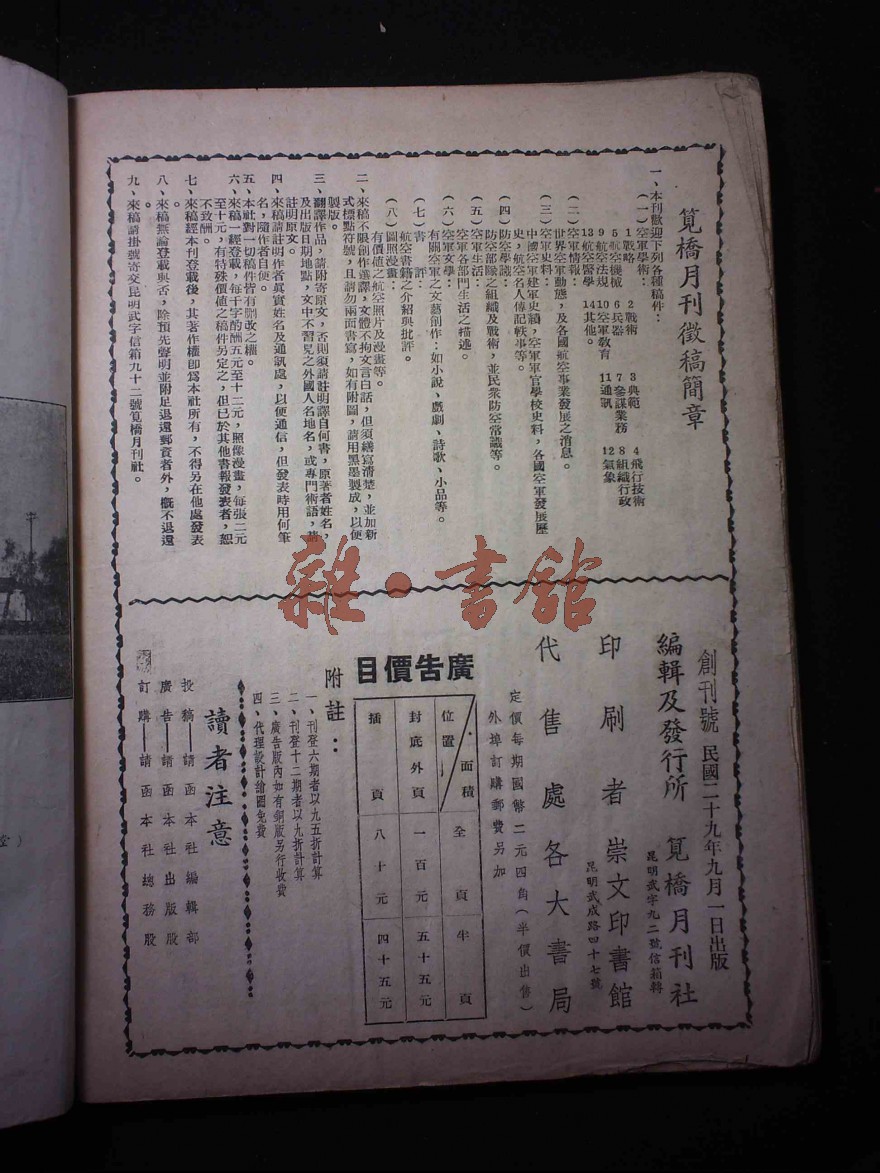 筧橋月刊徵稿簡章
一、本刊歡迎下列各種稿件：
（一）空軍學術：
1戰略　2戰術　3典範　4飛行技術
5航空機械　6兵器　7參謀業務　8組織行政
9航空法規　10空軍教育　11通訊　12氣象
13航空醫學　14其他。
（二）空軍情報：
世界空軍動態，及各國航空事業發展之消息。
（三）空軍史料：
中國空軍建軍史蹟，空軍軍官學校史料，各國空軍發展歷
史，航空名人傳記軼事等。
（四）防空學識：
防空部隊之組織及戰術，並民眾防空常識等。
（五）空軍生活：
空軍各部門生活之描述。
（六）空軍文學：
有關空軍之文藝創作：如小說、戲劇、詩歌、小品等。
（七）書　評：
航空書籍之介紹與批評。
（八）圖照漫畫：
有價值之航空照片及漫畫等。
二、來稿不限創作選譯，文體不拘文言白話，但須繕寫清楚，並加新
式標點符號，且請勿兩面書寫，如有附圖，請用黑墨製成，以便
製版。
三、翻譯作品，請附寄原文，否則須請註明譯自何書，原著者姓名，
及出版日期地點，文中不習見之外國人名地名，或專門術語，請
註明原文。
四、來稿請註明作者真實姓名及通訊處，以便通信，但發表時用何筆
名，隨作者自便。
五、本社對一切稿件皆有刪改之權。
六、來稿一經登載，每千字酌酬五元至十二元，照像漫畫，每張二元
至十元，有特殊價值之稿件另定之，但已於其他書報發表者，恕
不致酬。
七、來稿經本刊登載後，其著作權即為本社所有，不得另在他處發表
。
八、來稿無論登載與否，除預先聲明並附足退還郵資者外，概不退還
。
九、來稿請掛號寄交昆明武字信箱九十二號筧橋月刊社。
雜·書館
創刊號　民國二十九年九月一日出版
編輯及發行所　筧橋月刊社
昆明武字九二號信箱轉
印刷者　崇文印書館
昆明武成路四十七號
代售處　各大書局
定價每期國幣二元四角（半價出售）
外埠訂購郵費另加
廣告價目
位置／面積　全頁　半頁
封底外頁　一百元　五十五元
插頁　八十元　四十五元
附註：
一、刊登六期者以九五折計算
二、刊登十二期者以九折計算
三、廣告版內如有銅版另行收費
四、代理設計繪圖免費
讀者注意
投稿──請函本社編輯部
廣告──請函本社出版股
訂購──請函本社總務股